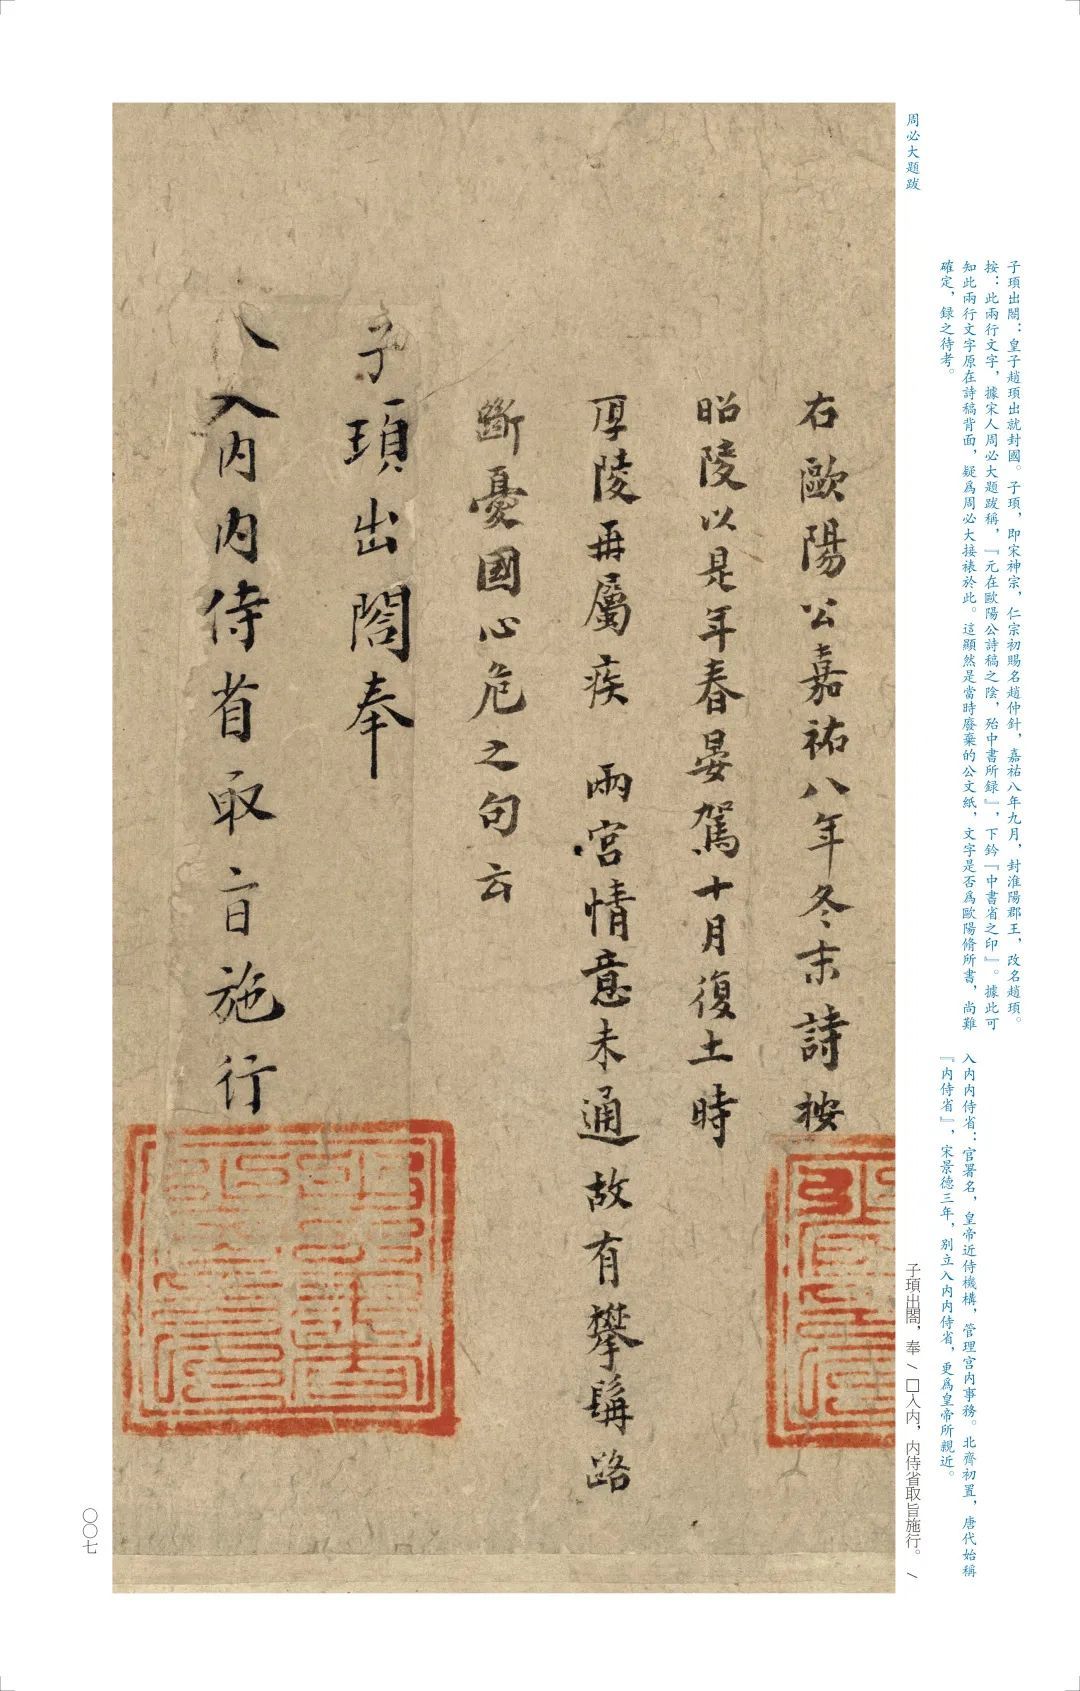 子頊出閤：皇子趙頊出就封國。子頊，即宋神宗，仁宗初賜名趙仲針，嘉祐八年九月，封淮陽郡王，改名趙頊。
按：此兩行文字，據宋人周必大題跋稱，『元在歐陽公詩稿之陰，殆中書所録』，下鈐『中書省之印』。據此可
知此兩行文字原在詩稿背面，疑爲周必大接裱於此。這顯然是當時廢棄的公文紙，文字是否爲歐陽脩所書，尚難
確定，録之待考。
入内内侍省：官署名，皇帝近侍機構，管理宫内事務。北齊初置，唐代始稱
『内侍省』，宋景德三年，别立入内内侍省，更爲皇帝所親近。
周必大題跋
子頊出閤，奉／□入内，内侍省取旨施行。／
右歐陽公嘉祐八年冬末詩按
昭陵以是年春晏駕十月復土時
厚陵再屬疾 兩宮情意未通故有攀髯路
斷憂國心危之句云
子頊出閤奉
入内内侍省取旨施行
〇〇七